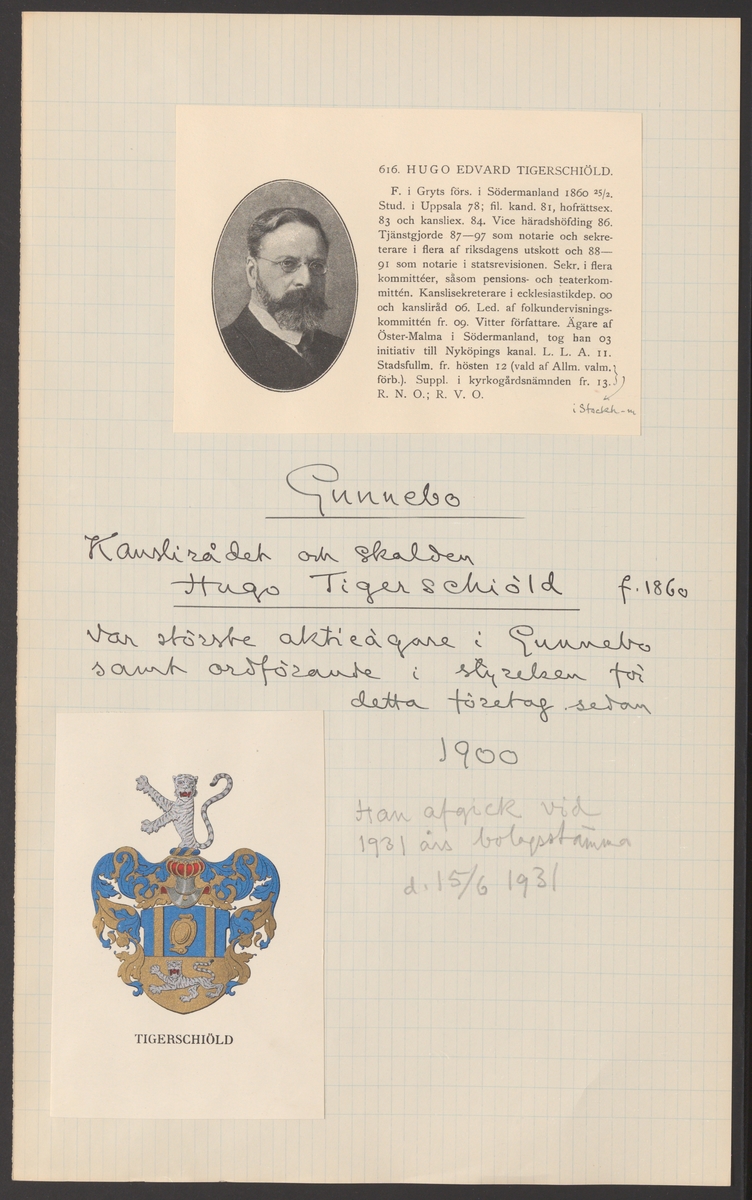 616. HUGO EDVARD TIGERSCHIÖLD.
F. i Gryts förs. i Södermanland 1860 25/2.
Stud. i Uppsala 78; fil. kand. 81, hofrättsex.
83 och kansliex. 84. Vice häradshöfding 86.
Tjänstgjorde 87—97 som notarie och sekre-
terare i flera af riksdagens utskott och 88—
91 som notarie i statsrevisionen. Sekr. i flera
kommittéer, såsom pensions- och teaterkom-
mittén. Kanslisekreterare i ecklesiastikdep. 00
och kansliråd 06. Led. af folkundervisnings-
kommittén fr. 09. Vitter författare. Ägare af
Öster-Malma i Södermanland, tog han 03
initiativ till Nyköpings kanal. L. L. A. 11.
Stadsfullm. fr. hösten 12 (vald af Allm. valm.
förb.). Suppl. i kyrkogårdsnämnden fr. 13.
R. N. O.; R. V. O.
i Stockh-m
Gunnebo
Kanslirådet och skalden
Hugo Tigerschiöld f. 1860
var störste aktieägare i Gunnebo
samt ordförande i styrelsen för
detta företag sedan
1900
Han afgick vid
1931 års bolagsstämma
d. 15/6 1931
TIGERSCHIÖLD